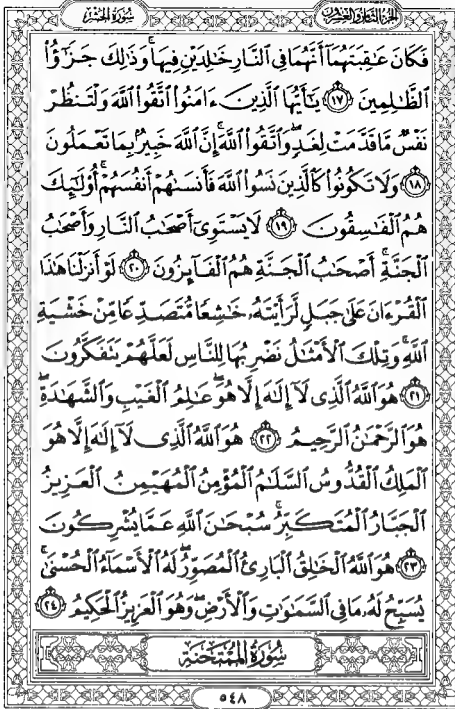 سُورَةُ الحَشْرِ
الجُزْءُ الثَّامِنُ وَالعِشْرُونَ
فَكَانَ عَٰقِبَتَهُمَآ أَنَّهُمَا فِي ٱلنَّارِ خَٰلِدَيۡنِ فِيهَاۚ وَذَٰلِكَ جَزَٰٓؤُاْ
ٱلظَّٰلِمِينَ ١٧ يَٰٓأَيُّهَا ٱلَّذِينَ ءَامَنُواْ ٱتَّقُواْ ٱللَّهَ وَلۡتَنظُرۡ
نَفۡسٞ مَّا قَدَّمَتۡ لِغَدٖۖ وَٱتَّقُواْ ٱللَّهَۚ إِنَّ ٱللَّهَ خَبِيرُۢ بِمَا تَعۡمَلُونَ
١٨ وَلَا تَكُونُواْ كَٱلَّذِينَ نَسُواْ ٱللَّهَ فَأَنسَىٰهُمۡ أَنفُسَهُمۡۚ أُوْلَٰٓئِكَ
هُمُ ٱلۡفَٰسِقُونَ ١٩ لَا يَسۡتَوِيٓ أَصۡحَٰبُ ٱلنَّارِ وَأَصۡحَٰبُ
ٱلۡجَنَّةِۚ أَصۡحَٰبُ ٱلۡجَنَّةِ هُمُ ٱلۡفَآئِزُونَ ٢٠ لَوۡ أَنزَلۡنَا هَٰذَا
ٱلۡقُرۡءَانَ عَلَىٰ جَبَلٖ لَّرَأَيۡتَهُۥ خَٰشِعٗا مُّتَصَدِّعٗا مِّنۡ خَشۡيَةِ
ٱللَّهِۚ وَتِلۡكَ ٱلۡأَمۡثَٰلُ نَضۡرِبُهَا لِلنَّاسِ لَعَلَّهُمۡ يَتَفَكَّرُونَ
٢١ هُوَ ٱللَّهُ ٱلَّذِي لَآ إِلَٰهَ إِلَّا هُوَۖ عَٰلِمُ ٱلۡغَيۡبِ وَٱلشَّهَٰدَةِۖ
هُوَ ٱلرَّحۡمَٰنُ ٱلرَّحِيمُ ٢٢ هُوَ ٱللَّهُ ٱلَّذِي لَآ إِلَٰهَ إِلَّا هُوَ
ٱلۡمَلِكُ ٱلۡقُدُّوسُ ٱلسَّلَٰمُ ٱلۡمُؤۡمِنُ ٱلۡمُهَيۡمِنُ ٱلۡعَزِيزُ
ٱلۡجَبَّارُ ٱلۡمُتَكَبِّرُۚ سُبۡحَٰنَ ٱللَّهِ عَمَّا يُشۡرِكُونَ
٢٣ هُوَ ٱللَّهُ ٱلۡخَٰلِقُ ٱلۡبَارِئُ ٱلۡمُصَوِّرُۖ لَهُ ٱلۡأَسۡمَآءُ ٱلۡحُسۡنَىٰۚ
يُسَبِّحُ لَهُۥ مَا فِي ٱلسَّمَٰوَٰتِ وَٱلۡأَرۡضِۖ وَهُوَ ٱلۡعَزِيزُ ٱلۡحَكِيمُ ٢٤
سُورَةُ المُمْتَحنَةِ
٥٤٨